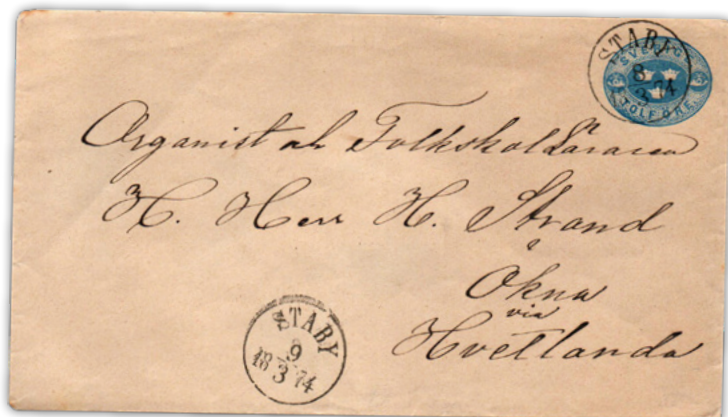 STABY
8
3 74
SVERIGE
TOLF ÖRE
Organist och Folkskolläraren
H. Herr H. Strand
Ökna
via
Hvetlanda
STABY
9
18 3 74